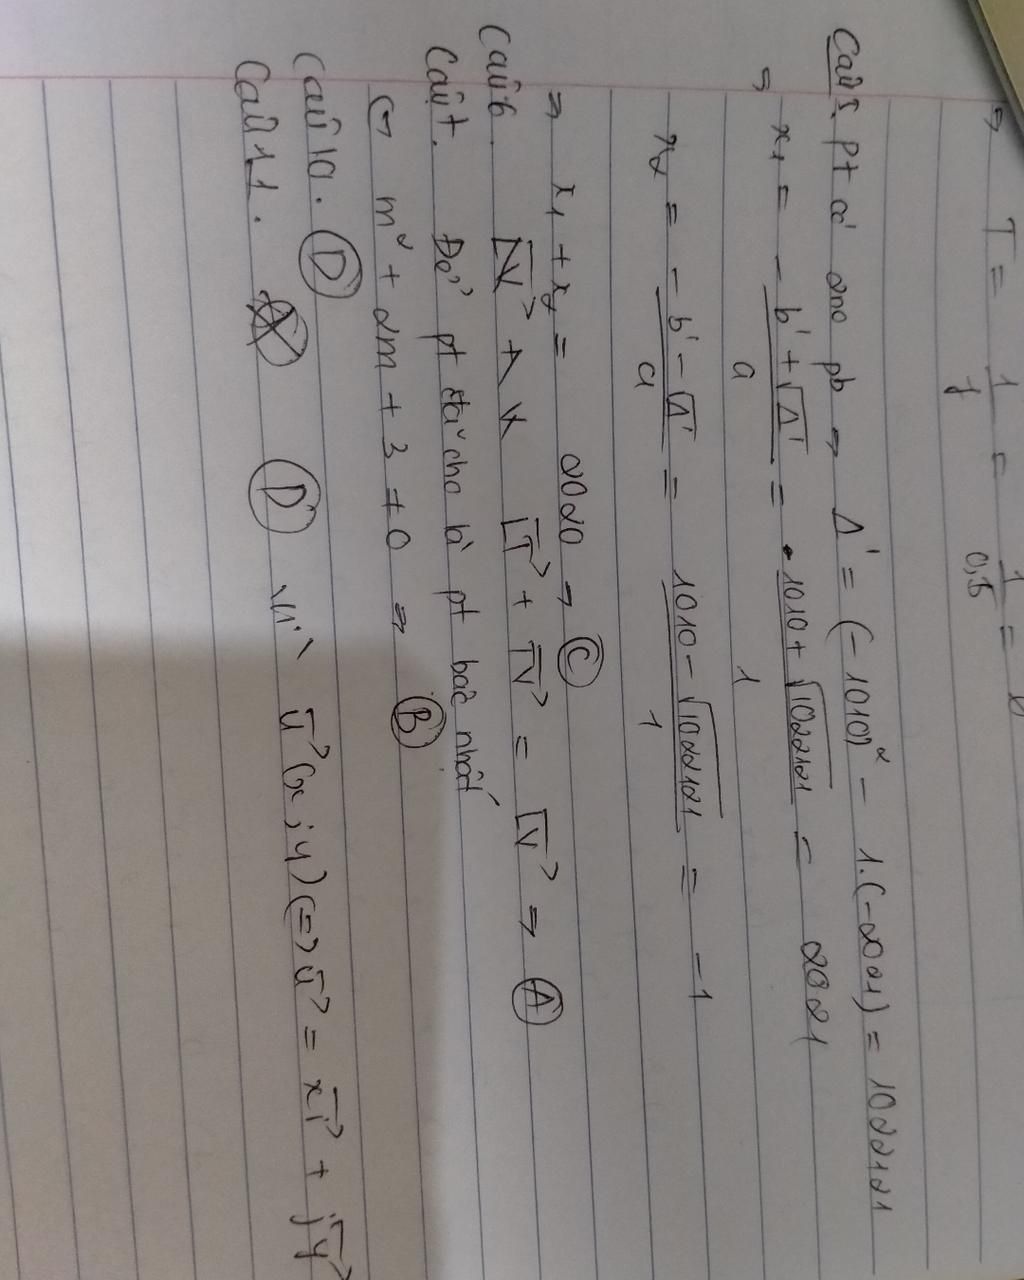 => T = 1/f = 1/0,5 =
Câu 5. pt có 2no pb => Δ' = (-1010)² - 1.(-2021) = 1022121
=> x₁ = (-b' + √Δ')/a = (1010 + √1022121)/1 = 2021
x₂ = (-b' - √Δ')/a = (1010 - √1022121)/1 = -1
=> x₁ + x₂ = 2020 => C
Câu 6
=> A
Câu 7. Để pt đã cho là pt bậc nhất
<=> m² + 2m + 3 ≠ 0 => B
Câu 10. D
Câu 11. D vì u(x; y) <=> u = xi + jy